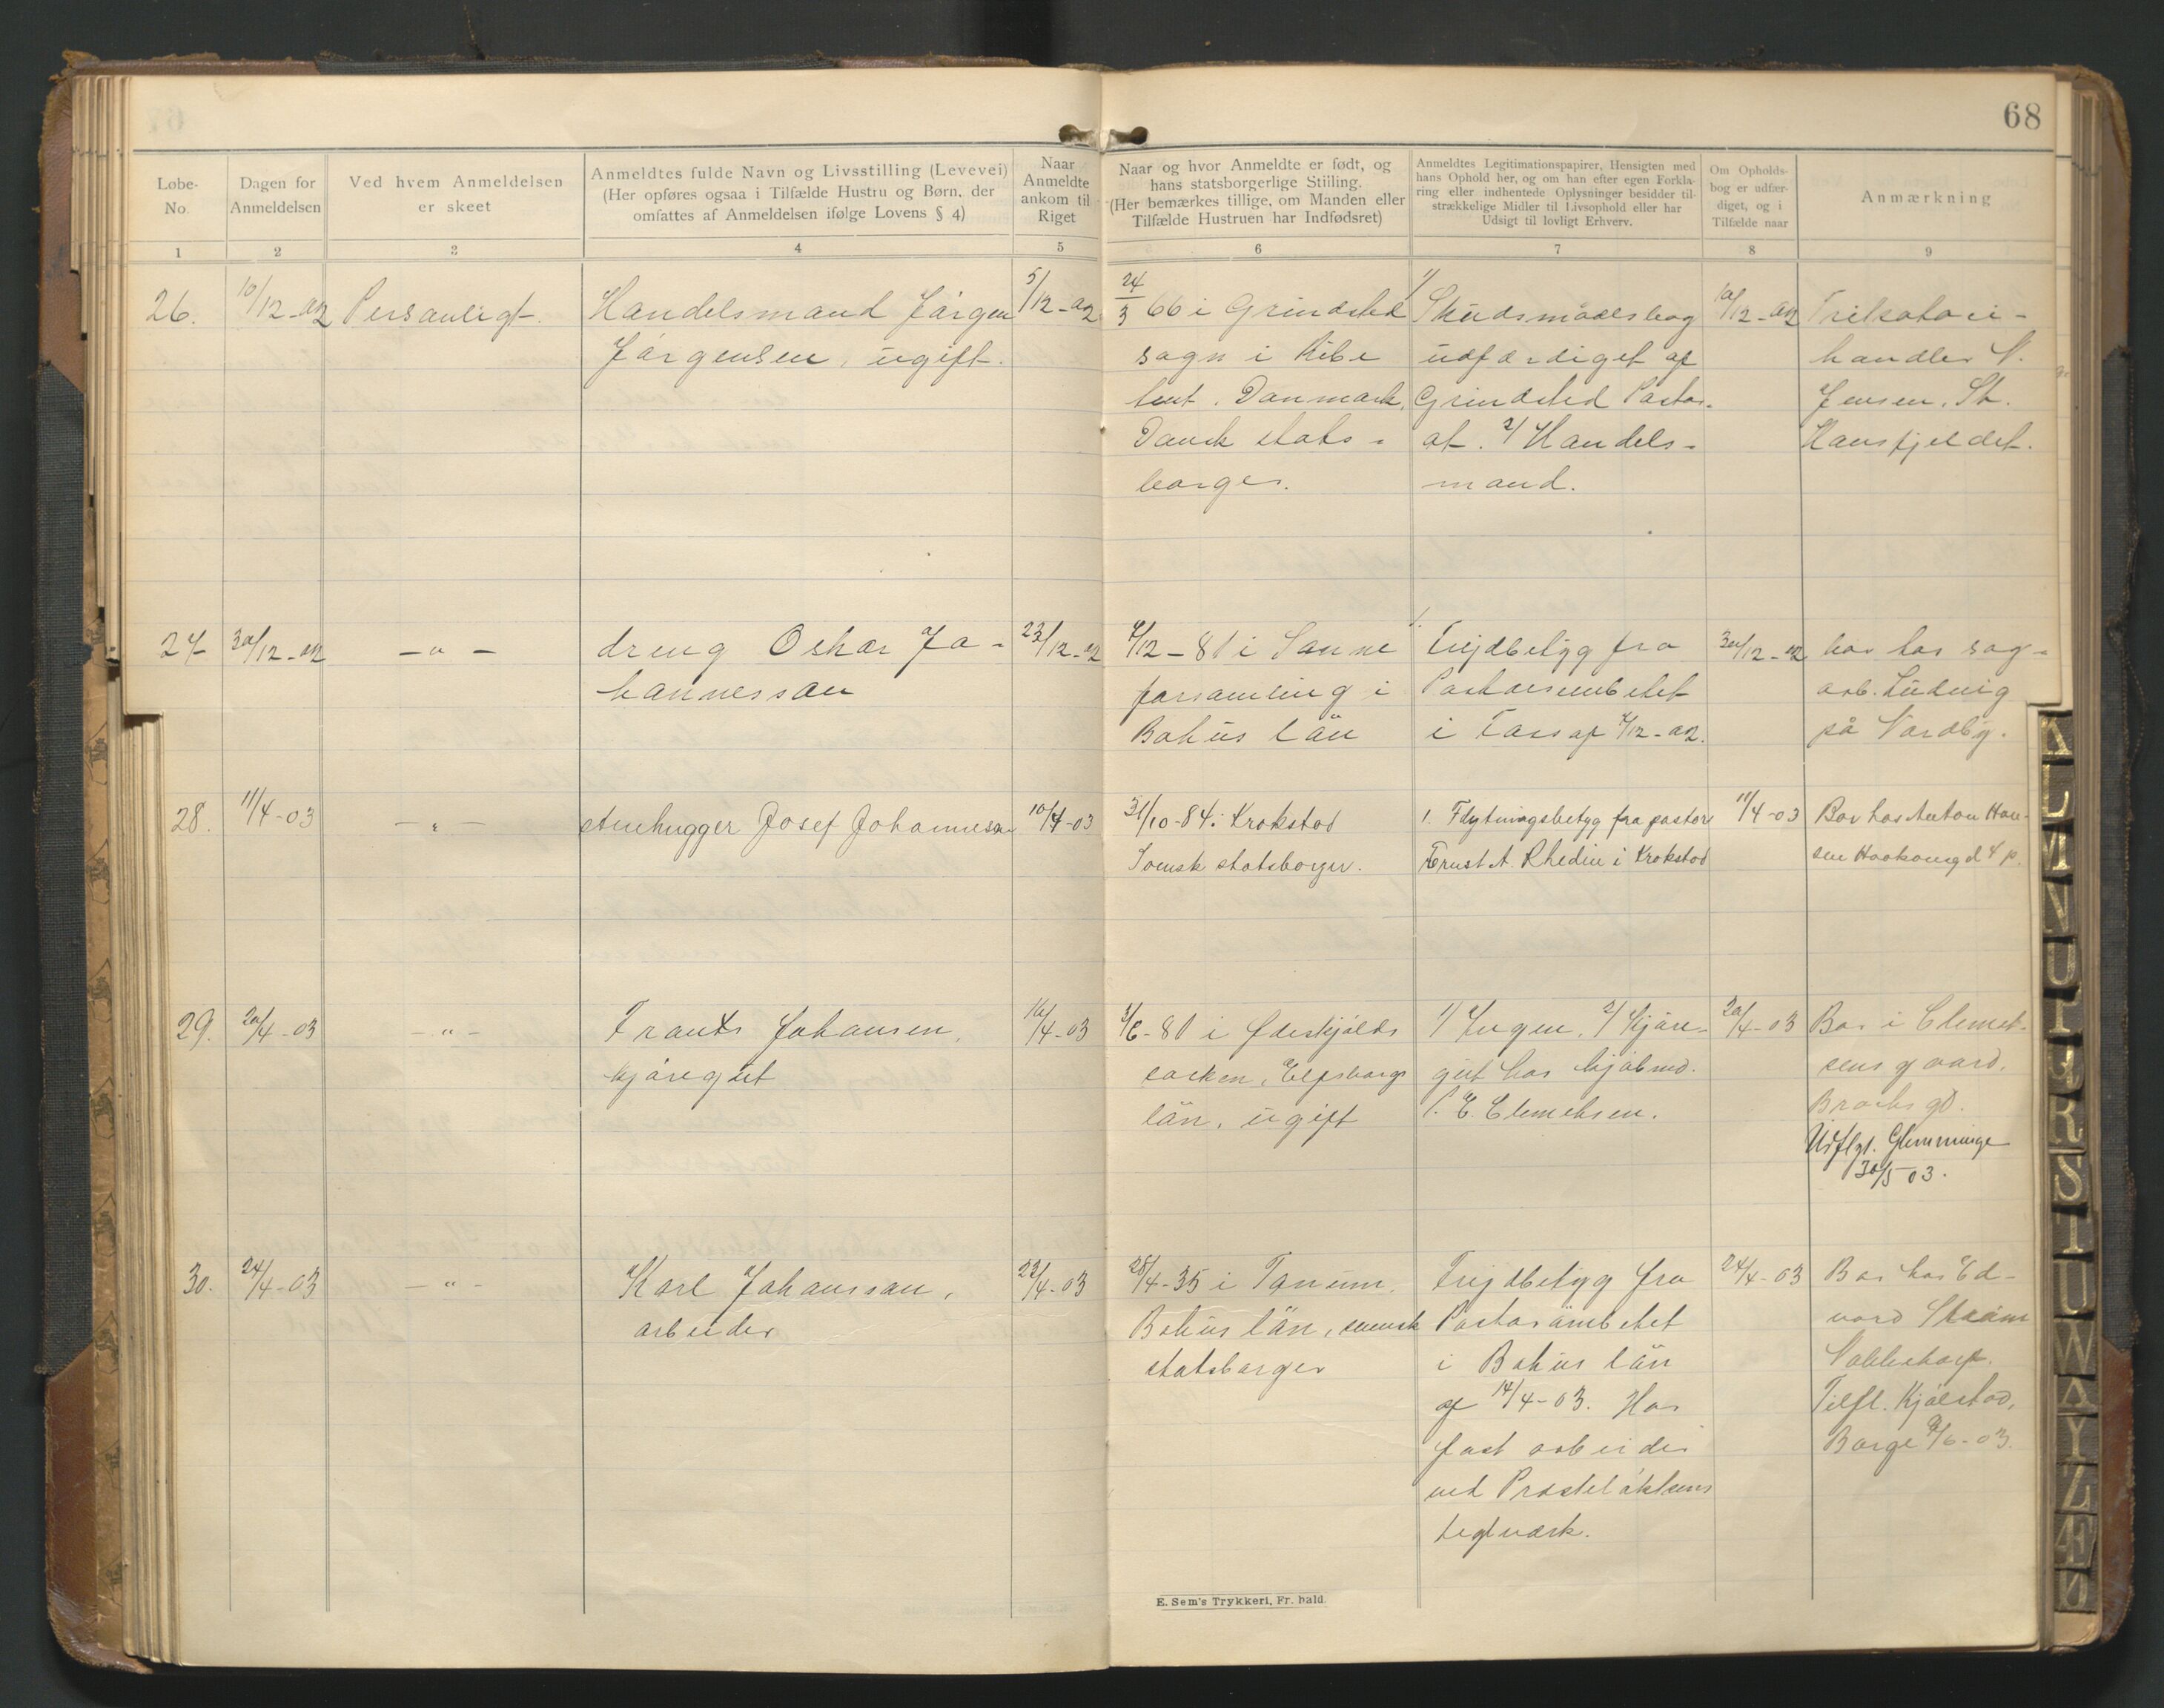 68
Løbe-
No.
Dagen for
Anmeldelsen
Ved hvem Anmeldelsen
er skeet
Anmeldtes fulde Navn og Livsstilling (Levevei)
(Her opføres ogsaa i Tilfælde Hustru og Børn, der
omfattes af Anmeldelsen ifølge Lovens § 4)
Naar
Anmeldte
ankom til
Riget
Naar og hvor Anmeldte er født, og
hans statsborgerlige Stiiling.
(Her bemærkes tillige, om Manden eller
Tilfælde Hustruen har Indfødsret)
Anmeldtes Legitimationspapirer, Hensigten med
hans Ophold her, og om han efter egen Forkla-
ring eller indhentede Oplysninger besidder til-
strækkelige Midler til Livsophold eller har
Udsigt til lovligt Erhverv.
Om Opholds-
bog er udfær-
diget, og i
Tilfælde naar
Anmærkning
1 2 3 4 5 6 7 8 9
26.
10/12-02
Personligt.
Handelsmand Jörgen
Jörgensen, ugift.
5/12-02
24/3 66 i Grindsted
sogn i Ribe
Dansk stats-
borger.
1/ Skudsmaalsbog
udfærdiget af
Grindsted Pastor-
at. 2/ Handels-
mand.
10/12-02
Trikotari-
handler
Jensen, St.
Hansfjeldet.
27
30/12-02
- " -
dreng Oskar Jo-
hannesson
23/12-02
4/12-81 i Sanne
forsamling i
Bohus län
1. Frejdbetyg fra
Pastorsembetet
i Foss af 4/12-02.
30/12-02
bor hos sag-
arb. Ludvig
på Nordby.
28.
11/4-03
- " -
Stenhugger Josef Johannesson
10/4-03
31/10-84 i Krokstad
Svensk statsborger.
1. Flytningsbetyg fra pastor
Ernst A. Rhedin i Krokstad
11/4-03
Bor hos Anton Han-
sen Haakonsgd 4
29.
20/4-03
- " -
Frants Johansen,
kjöregut
16/4-03
i Ödeskjölds
socken, Elfsborgs
län, ugift
1/ Ingen. 2/ Kjöre-
gut hos kjöbmd.
P. E. Clemetsen.
20/4-03
Bor i Clemet-
sens gaard,
Brochsgd.
Udflyt. Glemminge
30/5 03.
30.
24/4-03
- " -
Karl Johansson,
arbeider
23/4-03
28/4-35 i Tanum,
Bohus län, svensk
statsborger
Frejdbetyg fra
Pastorämbetet
i Bohus län
af 14/4-03. Har
fast arbeide
ved Presteløkkens
teglværk.
24/4-03
Bor hos Ed-
vard Ström
Labbetorp.
Tilfl. Kjölstad,
Borge 9/6-03.
E. Sem's Trykkeri, Fr. hald.
L
M
N
O
P
R
S
T
U
W
A
Y
Z
Æ
Ø